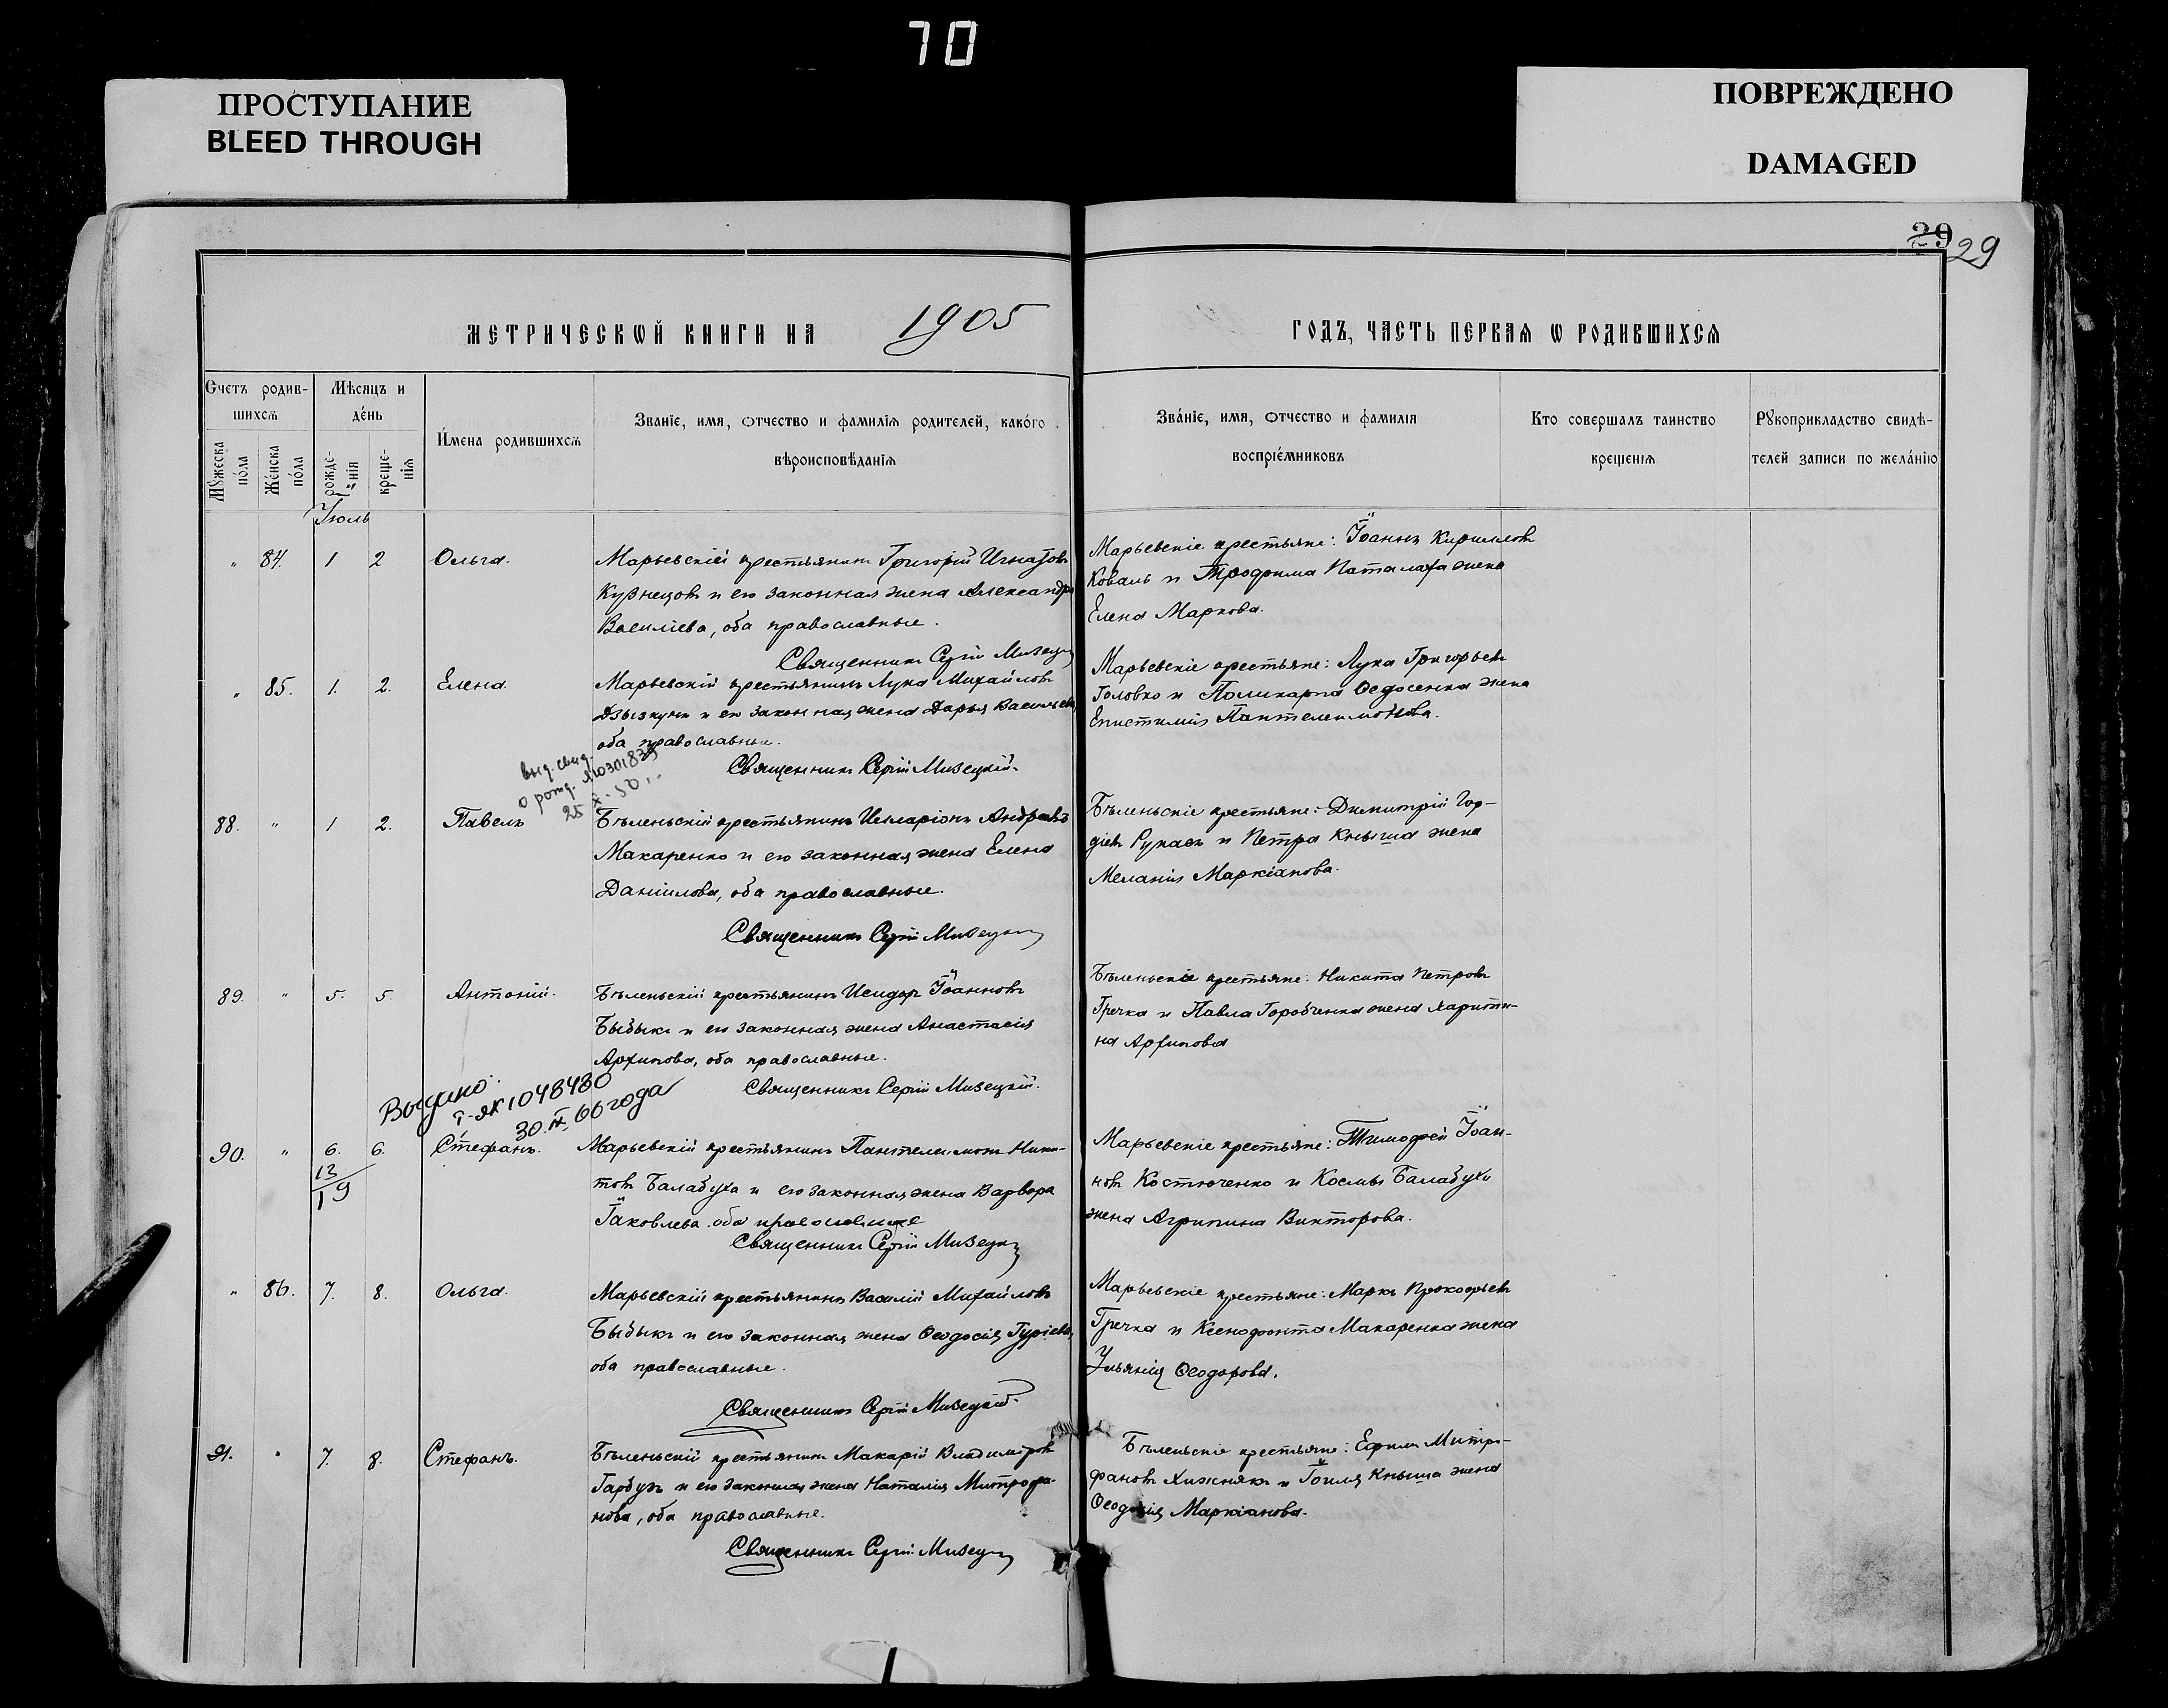 70
ПРОСТУПАНИЕ
BLEED THROUGH
ПОВРЕЖДЕНО
DAMAGED
29 29
МЕТРИЧЕСКѠЙ КНИГИ НА 1905 ГОДЪ, ЧАСТЬ ПЕРВАѦ Ѡ РОДИВШИХСѦ
Счетъ родив-
шихсѧ
Мꙋжеска пола
Же́нска по́ла
Мѣсяцъ и
де́нь
рожде-
нія
креще-
нїѧ
И́мена родившихсѧ
Званїе, имя, отчество и фамилїя родителей, како́го
вѣроисповѣданїѧ
Зва́нїе, имя, отчество и фамилїя
воспрїе́мниковъ
Кто совершалъ таинство
крещенїѧ
Рꙋкоприкладство свидѣ-
телей записи по жела́нїю
Іюль
" 84. 1 2 Ольга.
Марьевскій крестьянинъ Григорій Игнатовъ
Кузнецовъ и его законная жена Александра
Василіева, оба православные.
Священникъ Сергій Мизецкій
Марьевскіе крестьяне: Іоаннъ Кирилловъ
Коваль и Трофима Паталаха жена
Елена Маркова.
" 85. 1. 2. Елена.
Марьевскій крестьянинъ Лука Михайловъ
Дзызкунъ и его законная жена Дарья Васильева,
оба православные.
Священникъ Сергій Мизецкій.
Марьевскіе крестьяне: Лука Григорьевъ
Головко и Поликарпа Ѳедосенка жена
Епистимія Пантелеимонова.
выд. свид.
о рожд.
25 X. 50 г.
88. " 1 2. Павелъ
Бѣленьскій крестьянинъ Илларіонъ Андреевъ
Макаренко и его законная жена Елена
Даніилова, оба православные.
Священникъ Сергій Мизецкій
Бѣленьскіе крестьяне: Димитрій Гор-
діевъ и Петра Кныша жена
Меланія Маркіанова.
89. " 5. 5. Антоній.
Бѣленьскій крестьянинъ Исидоръ Іоанновъ
Быбыкъ и его законная жена Анастасія
Архипова, оба православные.
Священникъ Сергій Мизецкій.
Бѣленьскіе крестьяне: Никита Петровъ
Гречка и Павла Горобченка жена Харити-
на Архипова
Выдано
I-ЯК 1048480
30.IX.66 года
90. " 6. 6. Стефанъ.
13/19
Марьевскій крестьянинъ Пантелеимонъ Ники-
товъ Балабуха и его законная жена Варвара
Іаковлева, оба православные
Священникъ Сергій Мизецкій
Марьевскіе крестьяне: Тимофей Іоан-
новъ Костюченко и Космы Балабухи
жена Агрипина Викторова.
" 86. 7. 8. Ольга.
Марьевскій крестьянинъ Василій Михайловъ
Быбыкъ и его законная жена Ѳеодосія Гуріева,
оба православные.
Священникъ Сергій Мизецкій.
Марьевскіе крестьяне: Маркъ Прокофьевъ
Гречка и Ксенофонта Макаренка жена
Ульянія Ѳеодорова.
91. " 7. 8. Стефанъ.
Бѣленьскій крестьянинъ Макарій Владиміровъ
Гарбузъ и его законная жена Наталія Митрофа-
нова, оба православные.
Священникъ Сергій Мизецкій
Бѣленьскіе крестьяне: Ефимъ Митро-
фановъ Хижнякъ и Іоиля Кныша жена
Ѳеодосія Маркіанова.